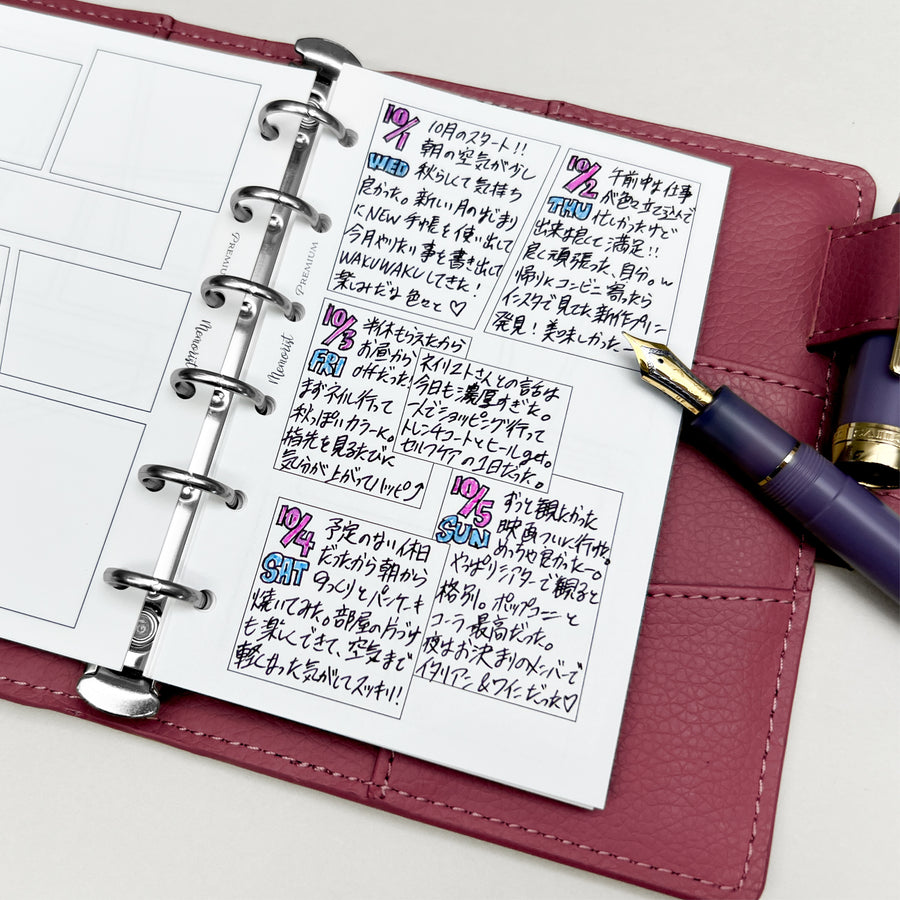 10/1
WED
10月のスタート!!
朝の空気が少し
秋らしくて気持ち
良かった。新しい月のはじまり
にNEW手帳を使い出して
今月やりたい事を書き出して
WAKUWAKUしてきた!
楽しみだな色々と♡
10/2
THU
午前中は仕事
が色々立て込んで
忙しかったけど
出来は良くて満足!!
良く頑張った、自分。w
帰りにコンビニ寄ったら
インスタで見てた新作プリン
発見!美味しかったー
10/3
FRI
半休もらえたから
お昼から
offだった!
まずネイル行って
秋っぽいカラーに。
指先を見るたびに
気分が上がってハッピ⤴
ネイリストさんとの話は
今日も濃厚すぎた。
一人でショッピング行って
トレンチコートとヒールget。
セルフケアの1日だった。
10/4
SAT
予定のない休日
だったから朝から
ゆっくりとパンケーキ
焼いてみた。部屋の片づけ
も楽しくできて、空気まで
軽くなった気がしてスッキリ!
10/5
SUN
ずっと観たかった
映画ついに行けた。
めっちゃ良かったー。
やっぱりシアターで観ると
格別。ポップコーンと
コーラ最高だった。
夜はお決まりのメンバーで
イタリアン&ワインだった♡
PREMIUM
Memorist
PREMIUM
Memorist